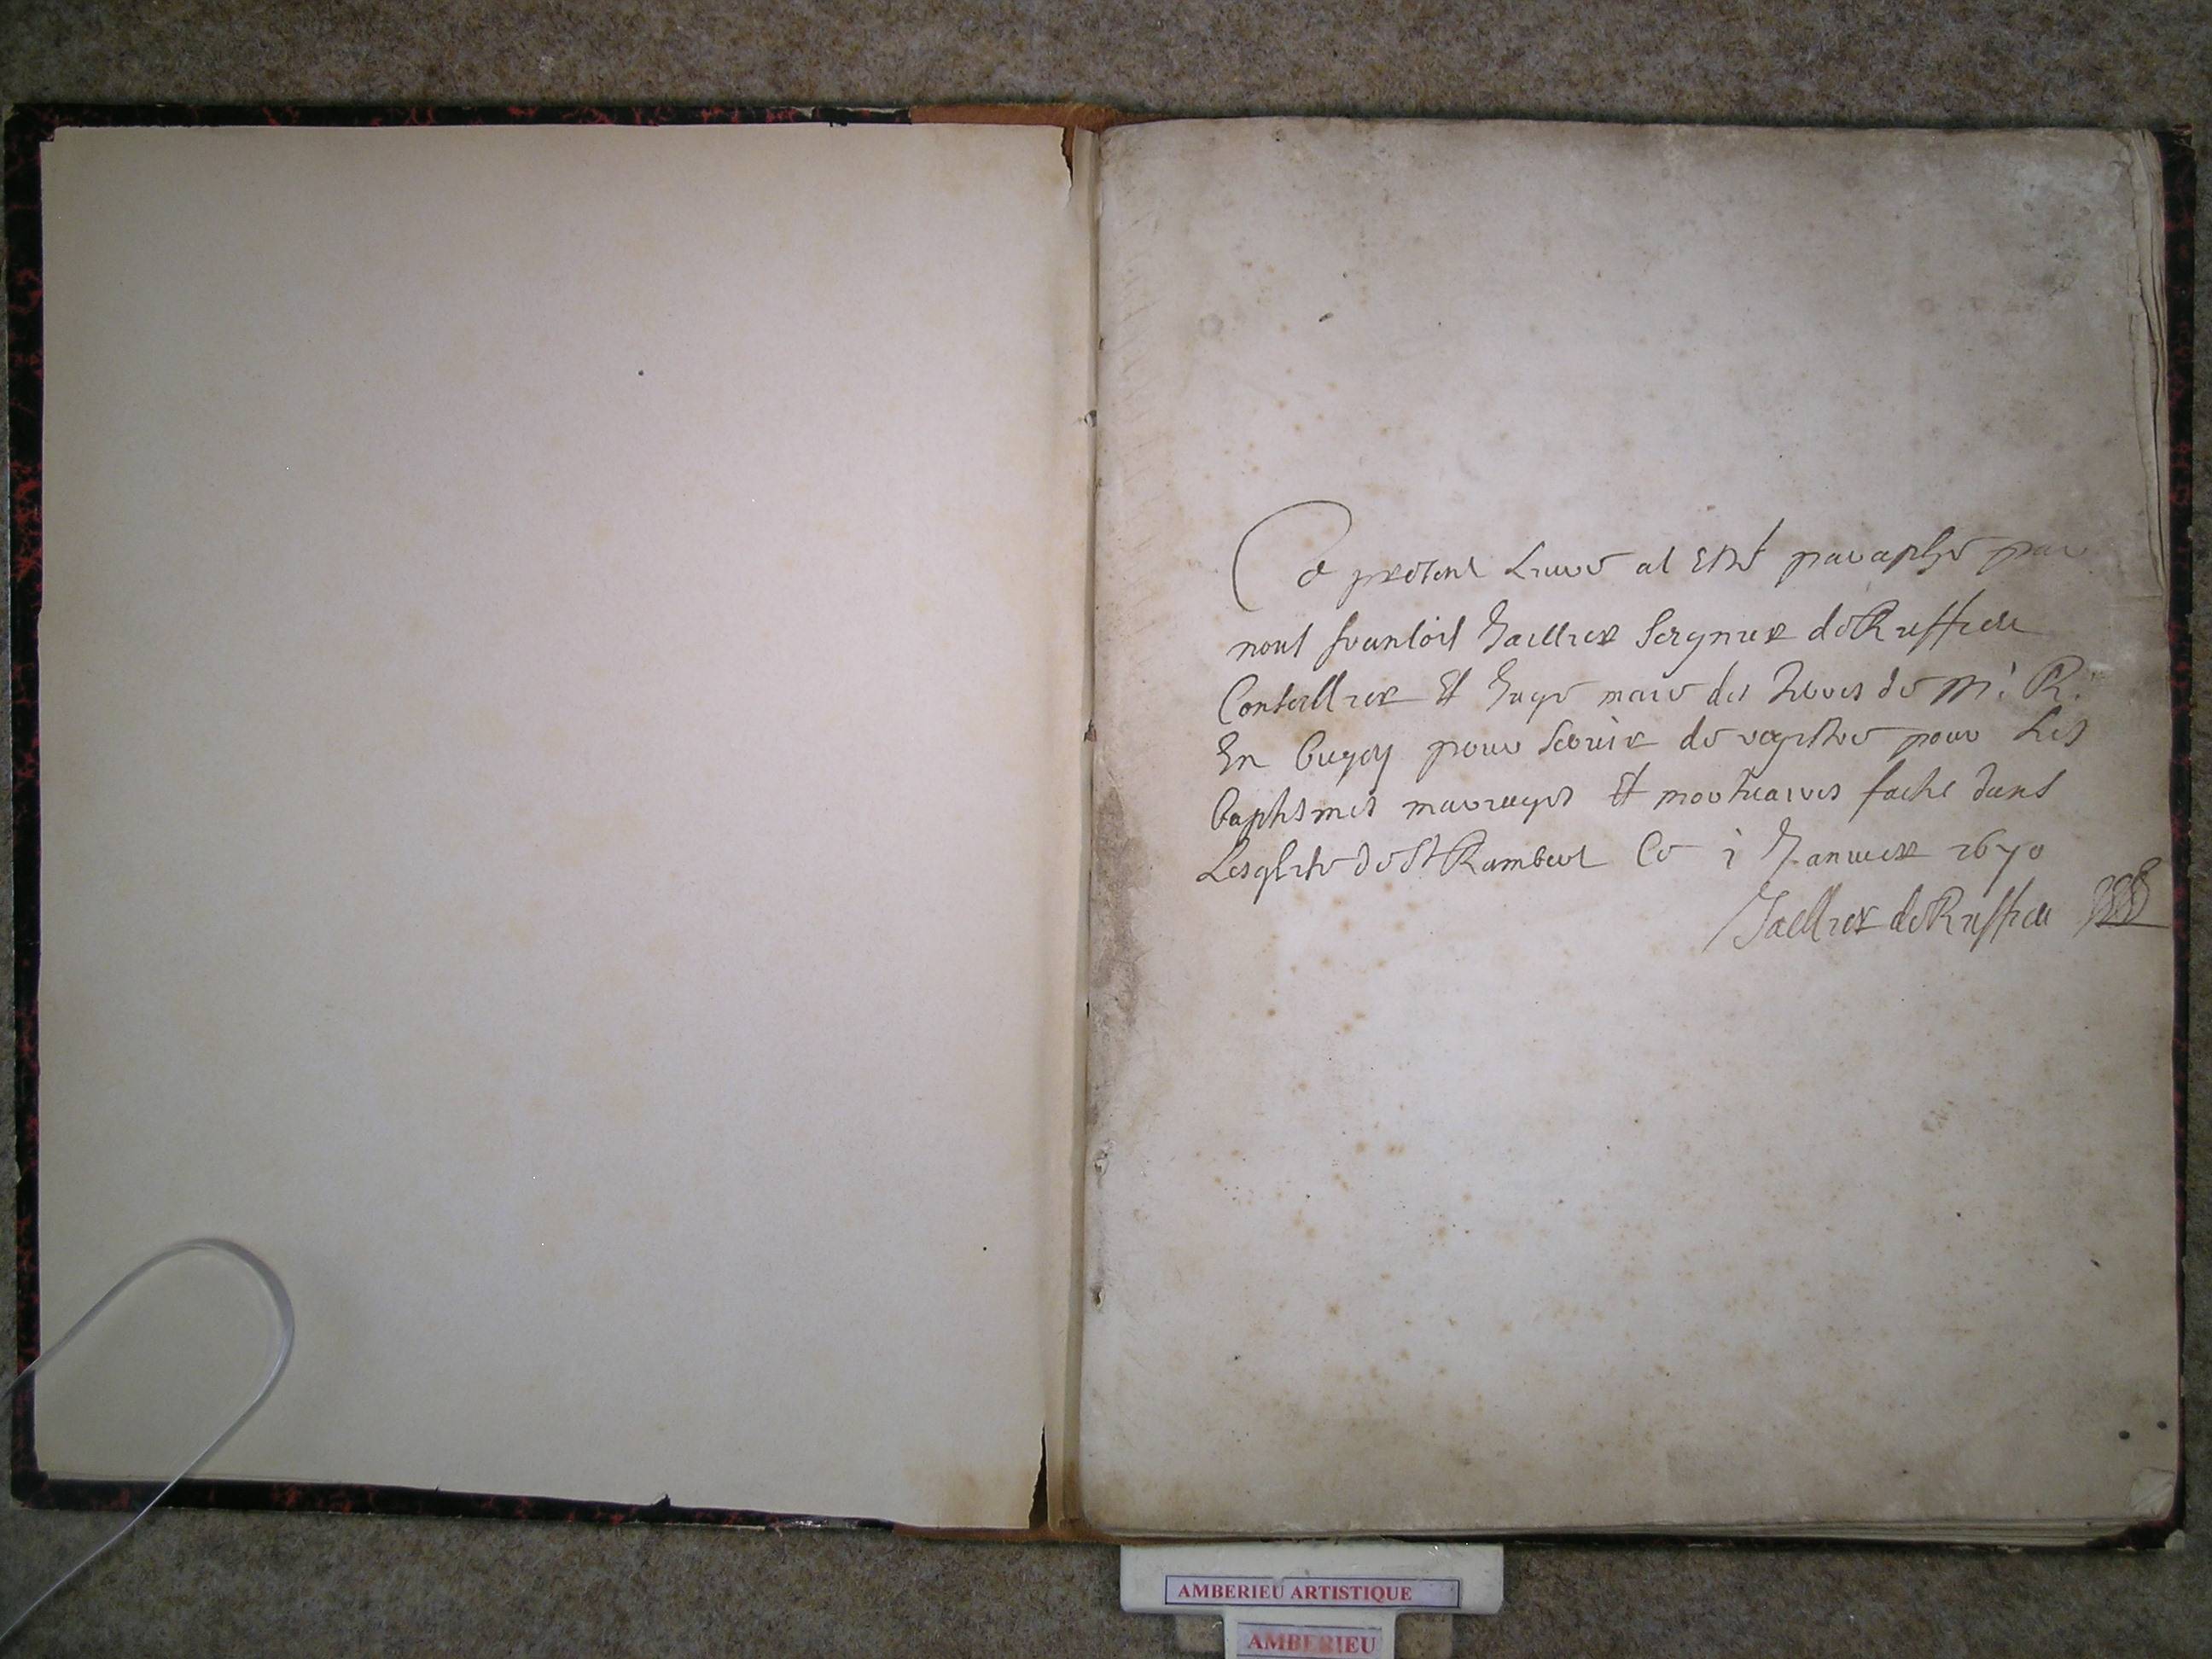 Ce present Livre at esté paraphé par
nous francois Jaillier Seigneur de Ruffieu
Conseillier Et Juge maie des Terres de
En bugey pour servir de registre pour Les
baptesmes mariages Et mortuaires faicts dans
Lesglise de St Rambert Ce i Janvier 1670
Jaillier de Ruffieu
AMBERIEU ARTISTIQUE
AMBERIEU